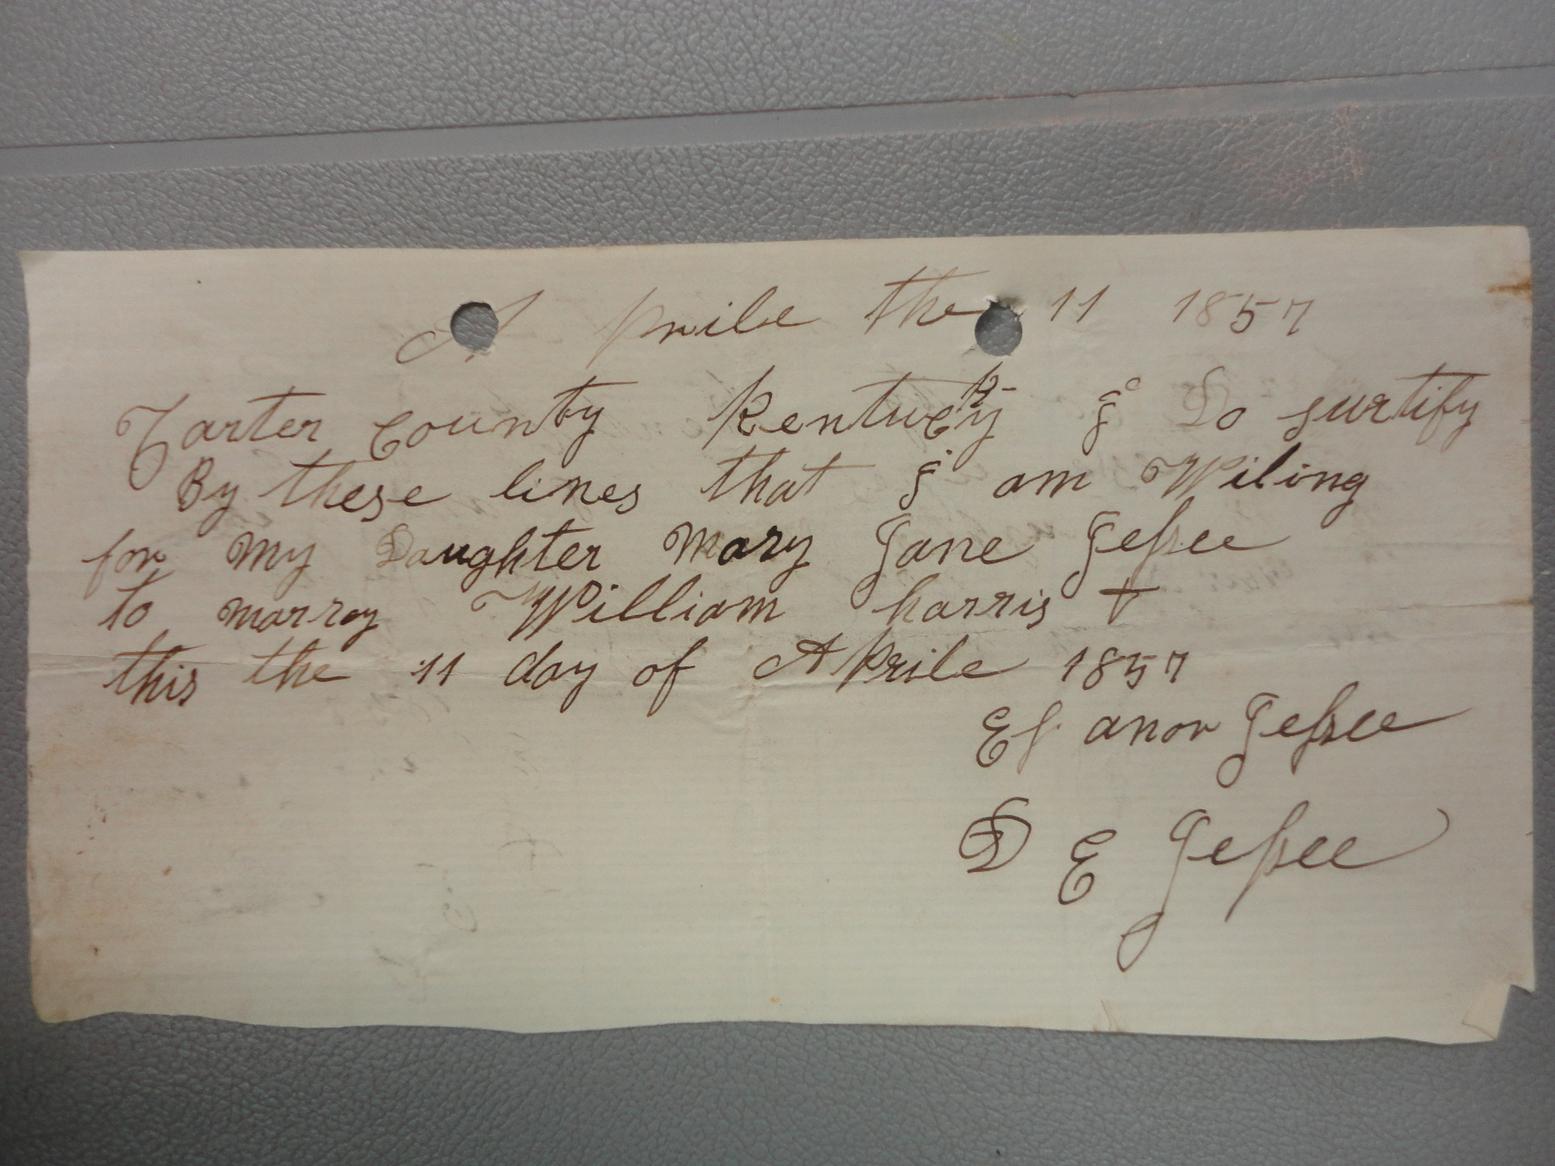 Aprile the 11 1857
Carter County Kentucky I Do surtify
By these lines that I am Wiling
for my Daughter Mary Jane Jessee
to marrey William harris +
this the 11 day of Aprile 1857
El anor Jessee
D E Jessee